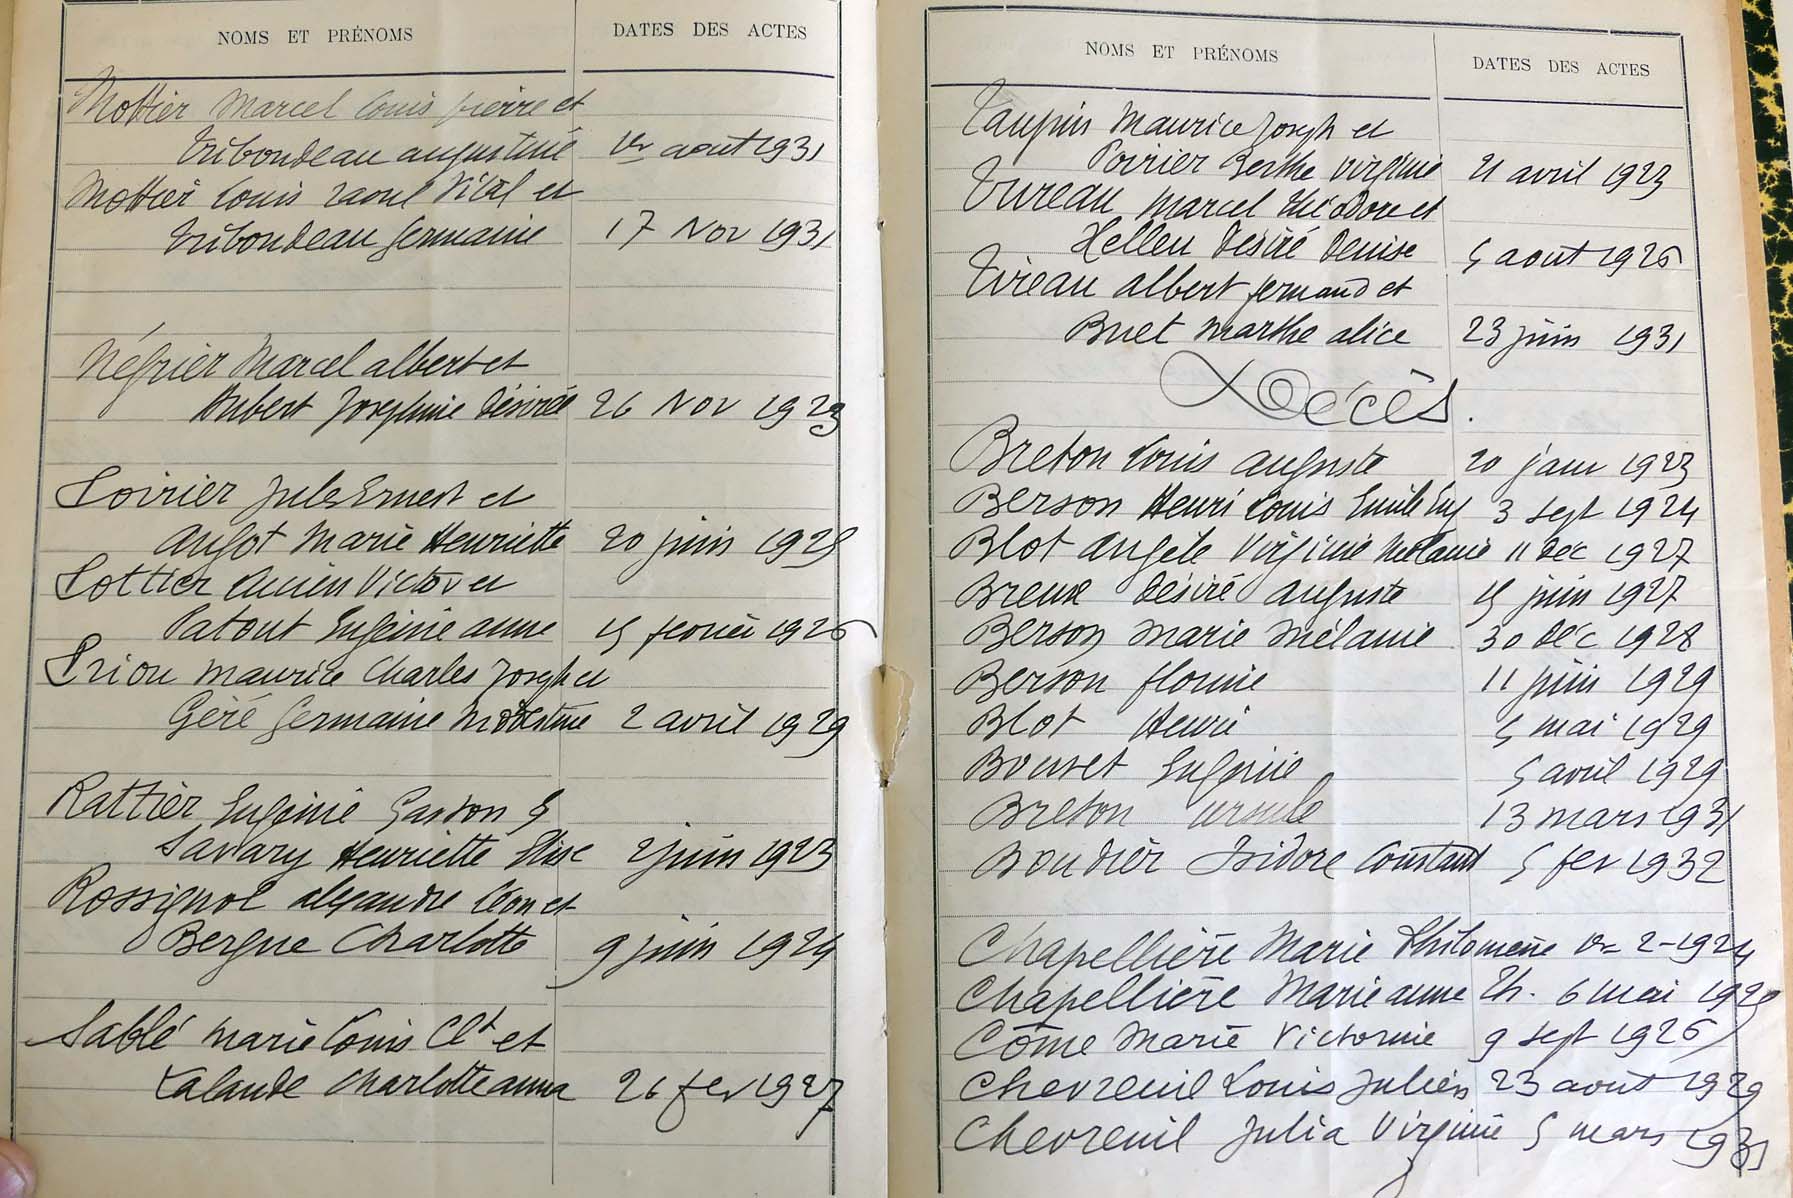 NOMS ET PRÉNOMS DATES DES ACTES
Mottier Marcel Louis pierre et
Tribondeau augustine 1er aout 1931
Mottier Louis raoul Vital et
Tribondeau germaine 17 Nov 1931
Négrier Marcel albert et
Hubert Joséphine désirée 26 Nov 1923
Poirier Jules Ernest et
angot Marie Henriette 20 juin 1925
Pottier Lucien Victor et
Patout Eugénie anne 15 février 1926
Priou maurice Charles Joseph et
Géré germaine 2 avril 1929
Rattier Eugène Gaston &
Savary Henriette Elise 2 juin 1923
Rossignol alexandre Léon et
Bergue Charlotte 9 juin 1924
Sablé marie Louis Clt et
Lalande charlotte anna 26 fev 1927
NOMS ET PRÉNOMS DATES DES ACTES
Taupin Maurice Joseph et
Poirier Berthe Virginie 21 avril 1923
Tureau Marcel théodore et
Helleu Désiré Denise 5 aout 1926
Tireau albert fernand et
Buet Marthe alice 23 juin 1931
Décès.
Breton Louis auguste 20 janv 1923
Berson Henri Louis Emile 3 sept 1924
Blot angèle Virginie Mélanie 11 déc 1927
Breux Désiré auguste 15 juin 1927
Berson Marie Mélanie 30 déc 1928
Berson florine 11 juin 1929
Blot Henri 5 mai 1929
Bouvet Eugénie 5 avril 1929
Breton ursule 13 mars 1931
Boudier Isidore Constant 5 fev 1932
Chapellière Marie Philomène 1er 2-1924
Chapellière Marie anne Th. 6 mai 1920
Côme Marie Victorine 9 sept 1926
Chevreuil Louis Julien 23 aout 1929
Chevreuil Julia Virginie 5 mars 1931